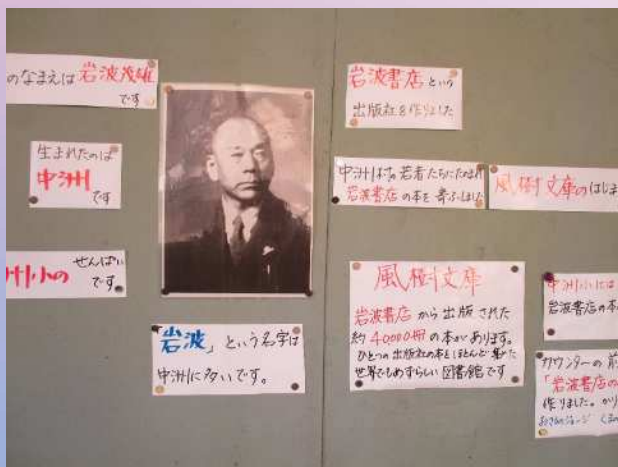 のなまえは岩波茂雄
です
生まれたのは
中洲
です
せんぱい
中洲小の
です。
「岩波」という名字は
中洲に多いです。
岩波書店という
出版社を作りました
中洲村の若者たちにたのまれ
岩波書店の本を寄ふしました
風樹文庫のはじま
風樹文庫
岩波書店から出版された
約40000冊の本があります。
ひとつの出版社の本をほとんど集めた
世界でもめずらしい図書館です
中洲小には
岩波書店の本
カウンターの前
「岩波書店の
作りました。かり